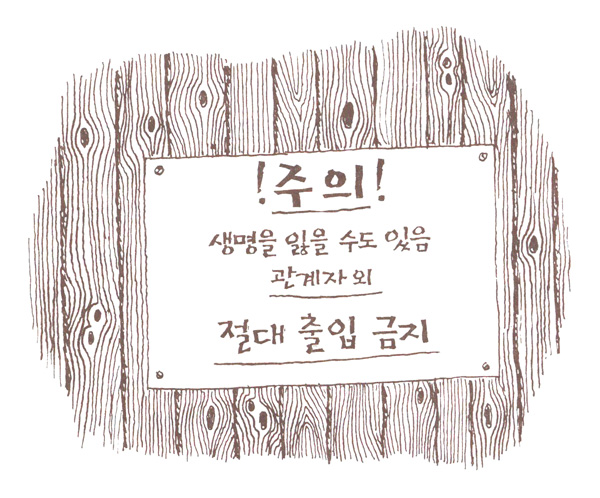 !주의!
생명을 잃을 수도 있음
관계자 외
절대 출입 금지